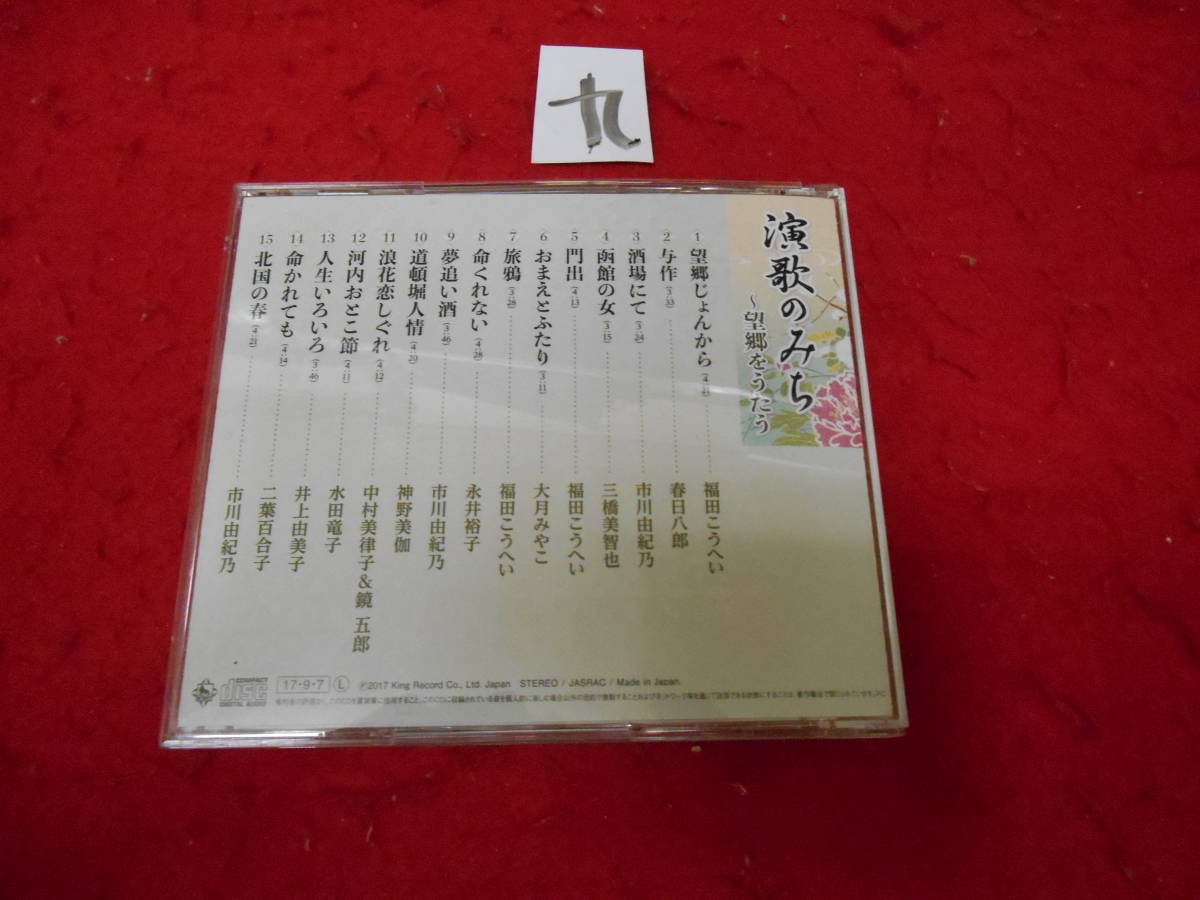 九
演歌のみち
~望郷をうたう
1 望郷じょんから 福田こうへい
2 与作 (3:33) 春日八郎
3 酒場にて (3:24) 市川由紀乃
4 函館の女 (3:15) 三橋美智也
5 門出 (4:13) 福田こうへい
6 おまえとふたり (3:11) 大月みやこ
7 旅鴉 (3:28) 福田こうへい
8 命くれない (4:28) 永井裕子
9 夢追い酒 (3:46) 市川由紀乃
10 道頓堀人情 (4:20) 神野美伽
11 浪花恋しぐれ (4:12) 中村美律子&鏡 五郎
12 河内おとこ節 (4:11) 水田竜子
13 人生いろいろ (3:46) 井上由美子
14 命かれても (4:14) 二葉百合子
15 北国の春 (4:21) 市川由紀乃
COMPACT disc DIGITAL AUDIO
17・9・7 L ℗2017 King Record Co., Ltd. Japan STEREO / JASRAC / Made in Japan.